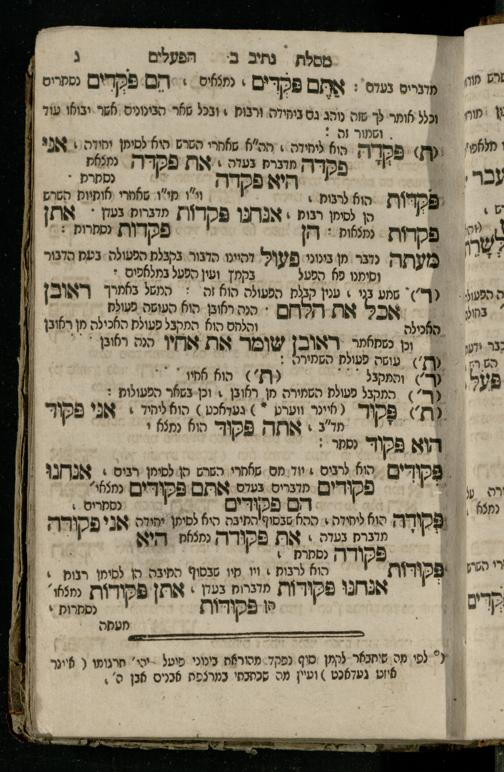 מסלת נתיב ב הפעלים ג
מדברים בעדם : אַתֶּם פּוֹקְדִים , נמצאים , הֵם פּוֹקְדִים נסתרים
וכלל אומר לך שזה נוהג גם ביחידה ורבות , ובכל שאר הבינונים אשר יבואו עוד
ושמור זה :
(ת) פּוֹקְדָה הוא ליחידה , הה"א שאחרי השרש היא לסימן יחידה , אני
פקדה מדברת בעדה , את פקדה נמצאת
היא פקדה נסתרת
פּוֹקְדוֹת הוא לרבות , וי"ו תי"ו שאחרי אותיות השרש
הן לסימן רבות , אנחנו פקדות מדברות בעדן אתן
פקדות נמצאות : הן פקדות נסתרות :
מעתה נדבר מן בינוני פעול דהיינו הדבור בקבלת הפעולה בעת הדבור
וסימנו פא הפעל בקמץ ועין הפעל במלאפים
(ר') שמע בני , ענין קבלת הפעולה הוא זה : המשל באמרך ראובן
אכל את הלחם הנה ראובן הוא העושה פעולת
האכילה והלחם הוא המקבל פעולת האכילה מן ראובן
וכן כשתאמר ראובן שומר את אחיו הנה ראובן
(ת') עושה פעולת השמירה :
(ר') והמקבל (ת') הוא אחיו
(ר') המקבל פעולת השמירה מן ראובן , וכן בשאר הפעולות :
(ת') פָּקוּד (איינר ווערט * געדאכט) הוא ליחיד , אני פקוד
מד"ב , אתה פקוד הוא נמצא
הוא פקוד נסתר :
פְּקוּדִים הוא לרבים , יוד מם שאחרי השרש הן לסימן רבים , אנחנו
פקודים מדברים בעדם אתם פקודים נמצאי'
הם פקודים נסתרים ,
פְּקוּדָה הוא ליחידה , ההא שבסוף התיבה היא לסימן יחידה אני פקודה
מדברת בעדה , את פקודה נמצאת היא
פקודה נסתרת ,
פְּקוּדוֹת הוא לרבות , ויו תיו שבסוף התיבה הן לסימן רבות ,
אנחנו פקודות מדברות בעדן , אתן פקודות נמצאו'
הן פקודות נסתרות ,
מעתה
(* לפי מה שיתבאר לקמן סוף נפקד מהוראת בינוני פועל יהי' תרגומו ( איינר
איזט געדאכט ) ועיין מה שכתבתי במרצפת אבנים אבן ה' ,